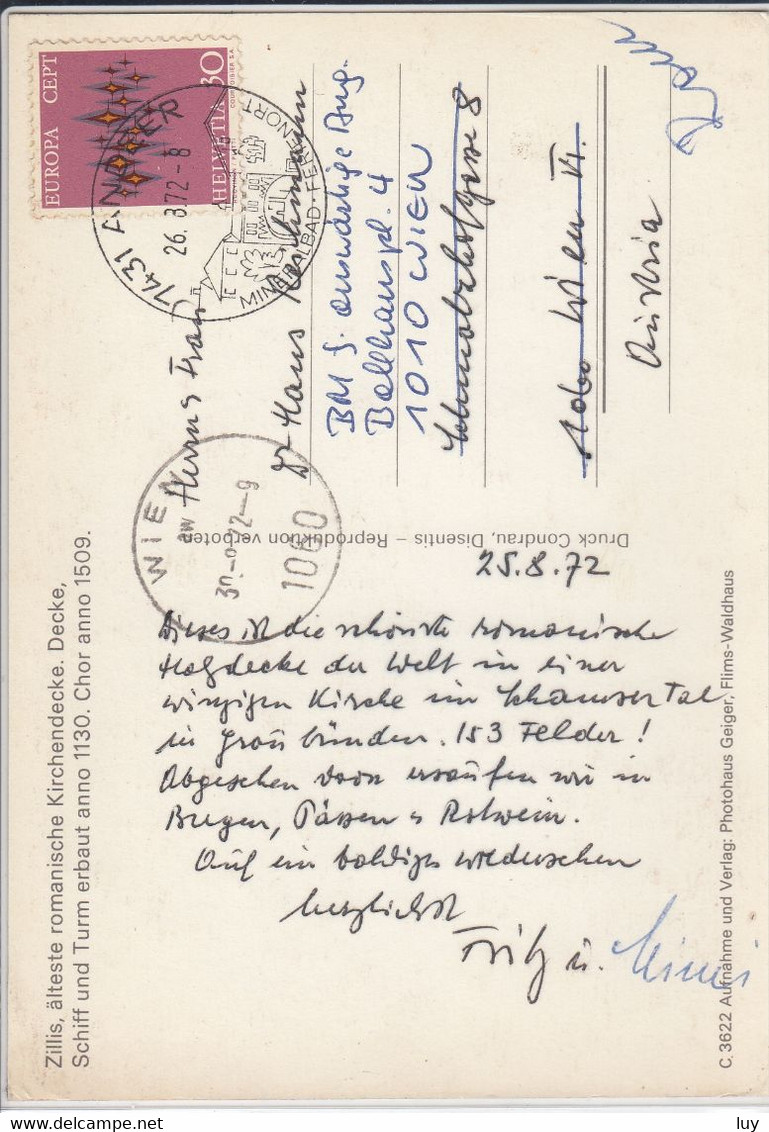 Zillis, älteste romanische Kirchendecke. Decke,
Schiff und Turm erbaut anno 1130. Chor anno 1509.
EUROPA CEPT
HELVETIA 30
COURVOISIER S.A.
7431 ANDEER
26.8.72-8
MINERALBAD · FERIENORT
WIEN
aw
30.-8.72-9
1060
Herrn u Frau
Dr Hans
BM f. auswärtige Ang.
Ballhauspl. 4
1010 WIEN
Schmalzhofgasse 8
1060 Wien VI.
Austria
Druck Condrau, Disentis – Reproduktion verboten
25.8.72
Dieses ist die schönste romanische
Holzdecke der Welt in einer
winzigen Kirche im Schamsertal
in Graubünden. 153 Felder!
Abgesehen davon ersaufen wir in
Burgen, Pässen u Rotwein.
Auf ein baldiges wiedersehen
herzlichst
Fritz u. Mimi
C. 3622 Aufnahme und Verlag: Photohaus Geiger, Flims-Waldhaus
luy